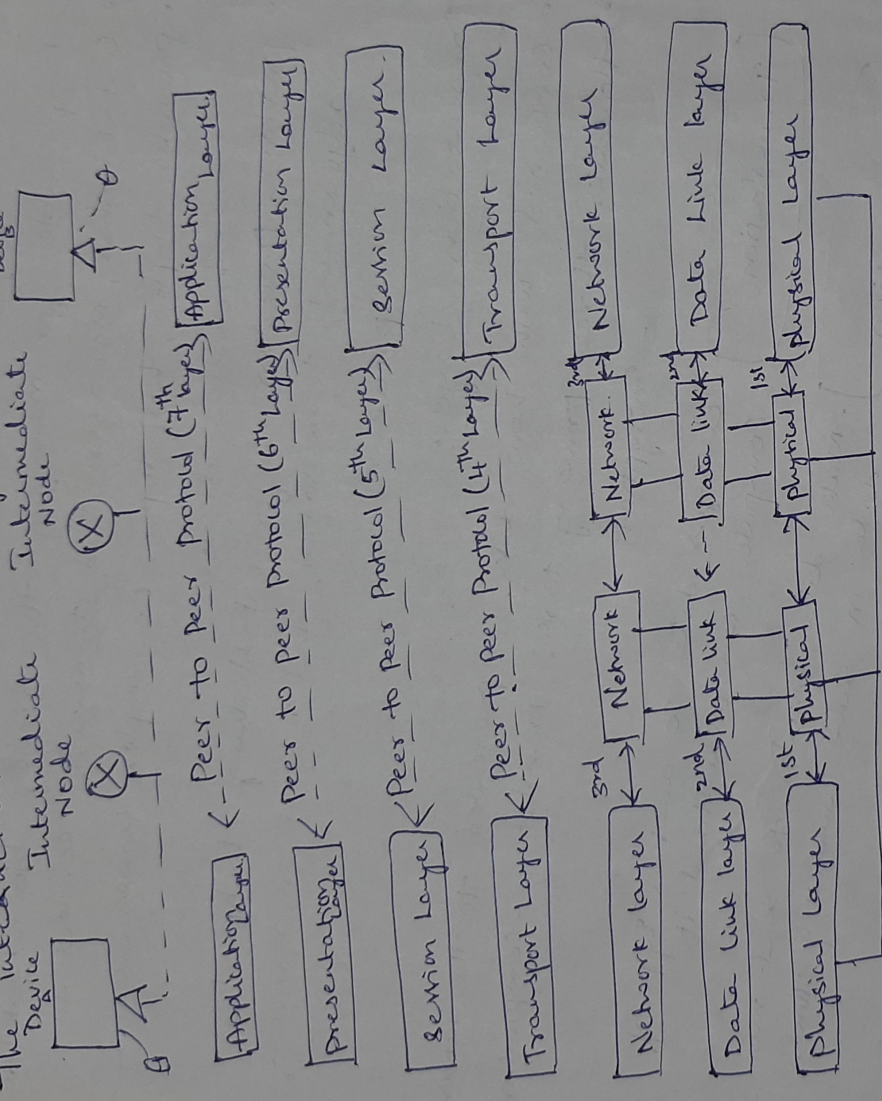 The
Device
A
Intermediate
Node
Intermediate
Node
B
Application Layer
Peer to Peer Protocol (7th layer)
Application Layer
Presentation Layer
Peer to peer protocol (6th Layer)
Presentation Layer
Session Layer
Peer to Peer Protocol (5th Layer)
Session Layer
Transport Layer
Peer to peer Protocol (4th Layer)
Transport Layer
Network Layer
3rd
Network
Network
3rd
Network Layer
Data Link layer
2nd
Data link
Data link
2nd
Data Link layer
Physical Layer
1st
Physical
Physical
1st
Physical Layer